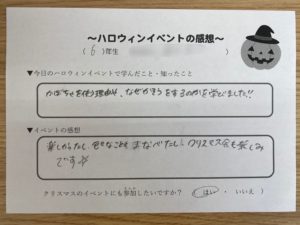 ～ハロウィンイベントの感想～
( 6 )年生
▼今日のハロウィンイベントで学んだこと・知ったこと
かぼちゃを使う理由や、なぜかそうをするのかを学びました!!
▼イベントの感想
楽しかったし 色々なことも まなべたし、クリスマス会も楽しみ
です
クリスマスのイベントにも参加したいですか? ( はい ・ いいえ )